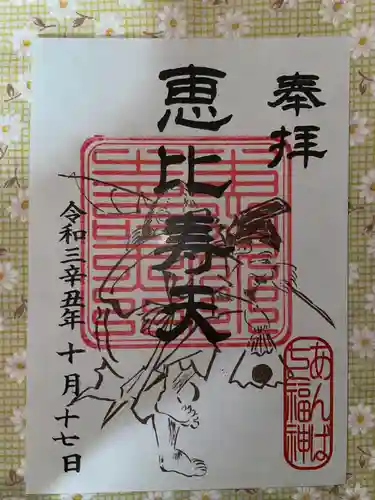 奉拝
恵比寿天
令和三辛丑年 十月十七日
あんば
福神